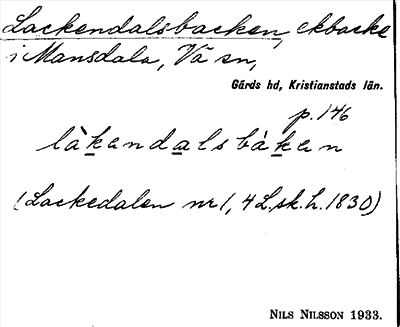 Lackendalsbacken, ekbacke
i Mansdala, Vä sn,
Gärds hd, Kristianstads län.
p. 146
làkendalsbàken
(Lackedalen nr 1, 4 L.sk.h. 1830)
NILS NILSSON 1933.